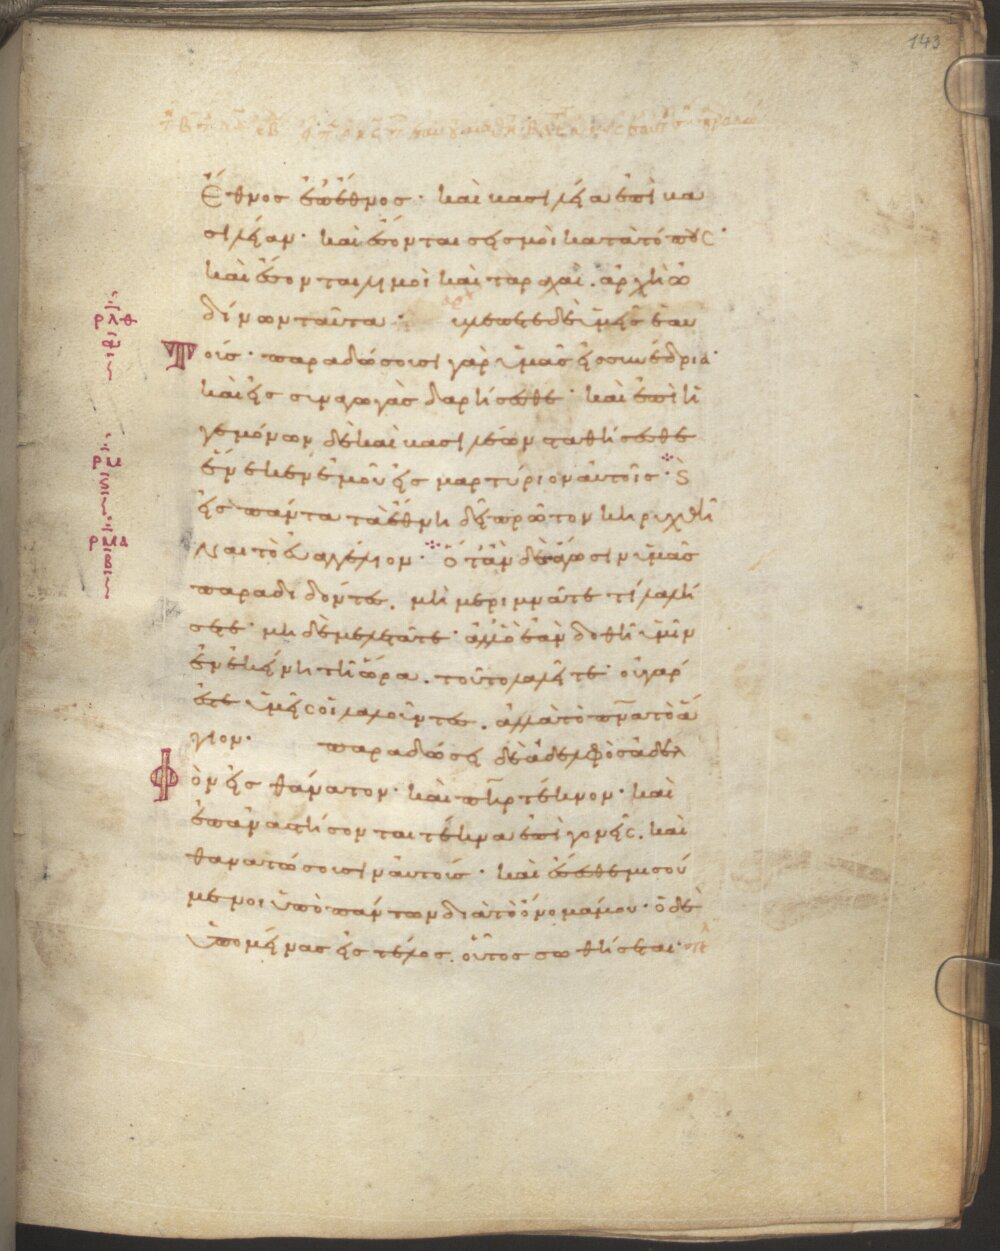 143
Ἔθνος ἐπ' ἔθνος· καὶ βασιλεία ἐπὶ βα
σιλείαν· καὶ ἔσονται σεισμοὶ κατὰ τόπους·
καὶ ἔσονται λιμοὶ καὶ ταραχαί. ἀρχὴ ὠ
δίνων ταῦτα· βλέπετε δὲ ὑμεῖς ἑαυ
ρλθ
τούς· παραδώσουσι γὰρ ὑμᾶς εἰς συνέδρια·
καὶ εἰς συναγωγὰς δαρήσεσθε· καὶ ἐπὶ ἡ
γεμόνων δὲ καὶ βασιλέων σταθήσεσθε
ρμ
ἕνεκεν ἐμοῦ εἰς μαρτύριον αὐτοῖς· ϗ
εἰς πάντα τὰ ἔθνη δεῖ πρῶτον κηρυχθῆ
ρμα
ναι τὸ εὐαγγέλιον· ὅταν δὲ ἄγωσιν ὑμᾶς
παραδιδόντες. μὴ μεριμνᾶτε τί λαλή
σετε· μὴ δὲ μελετᾶτε· ἀλλ' ὃ ἐὰν δοθῆ ὑμῖν
ἐν ἐκείνη τῆ ὥρα. τοῦτο λαλεῖτε· οὐ γάρ
ἐστε ὑμεῖς οἱ λαλοῦντες. ἀλλὰ τὸ πνα τὸ ἅ
γιον· παραδώσει δὲ ἀδελφὸς ἀδελ
φὸν εἰς θάνατον· καὶ πηρ τέκνον· καὶ
ἐπαναστήσονται τέκνα ἐπὶ γονεῖς. καὶ
θανατώσουσιν αὐτούς· καὶ ἔσεσθε μισού
μενοι ὑπὸ πάντων διὰ τὸ ὄνομά μου· ὁ δὲ
ὑπομείνας εἰς τέλος. οὗτος σωθήσεται·